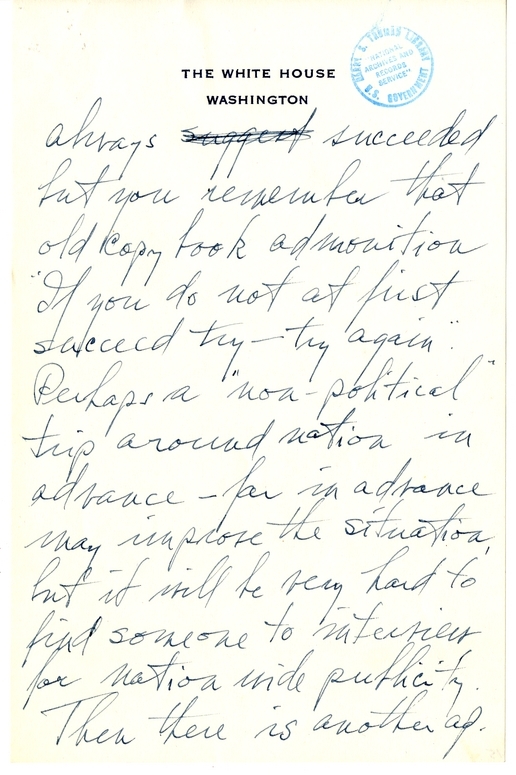 THE WHITE HOUSE
WASHINGTON
HARRY S. TRUMAN LIBRARY
"NATIONAL
ARCHIVES AND
RECORDS
SERVICE"
U.S. GOVERNMENT
always suggest succeeded
but you remember that
old copy book admonition
"If you do not at first
succeed try—try again".
Perhaps a "non-political"
trip around nation in
advance – far in advance
may improve the situation,
but it will be very hard to
find someone to interview
for nation wide publicity.
Then there is another ad.